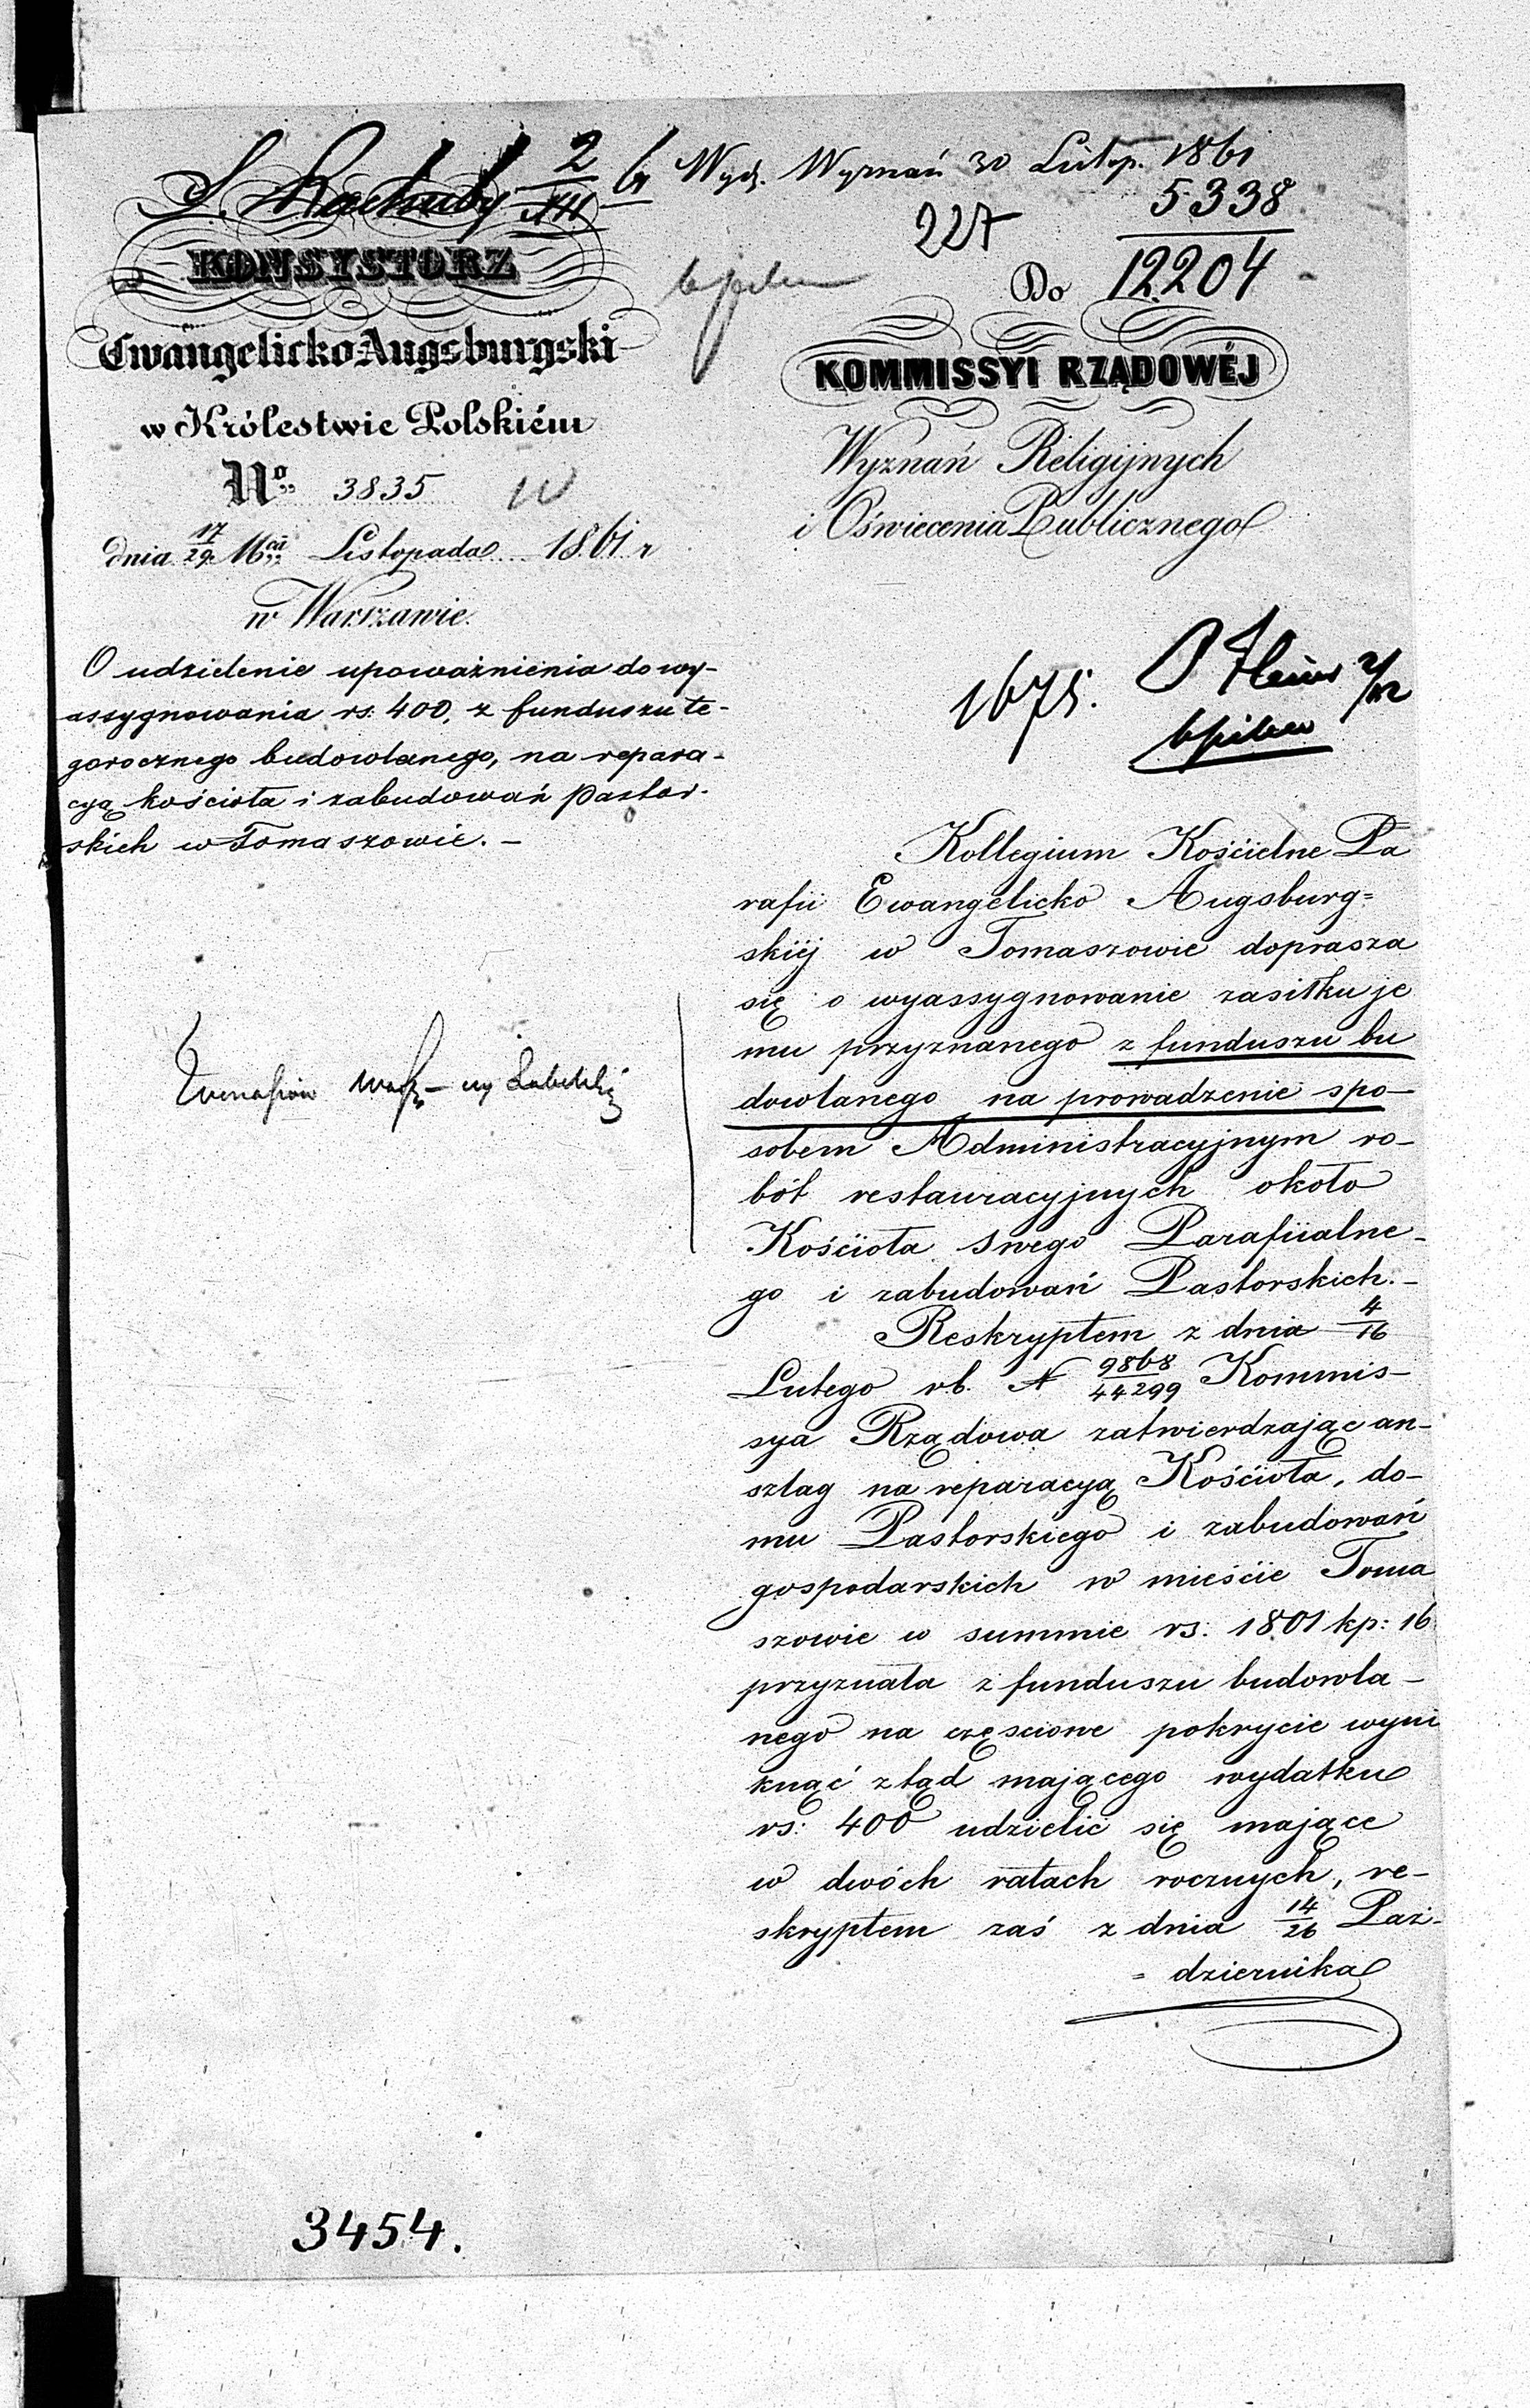 S. Rachuby 2/XII 61
Wydz. Wyznań 30 Listop. 1861
227
5338
12204
KONSYSTORZ
Ewangelicko-Augsburgski
w Królestwie Polskiém
No. 3835
dnia 17/29 Mca Listopada 1861 r
w Warszawie.
O udzielenie upoważnienia do wy-
assygnowania rs. 400, z funduszu te-
gorocznego budowlanego, na repara-
cyą kościoła i zabudowań Pastor-
skich w Tomaszowie. –
Do
KOMMISSYI RZĄDOWÉJ
Wyznań Religijnych
i Oświecenia Publicznego
1675.
2/12
Kollegium Kościelne Pa
rafii Ewangelicko Augsburg=
skiéj w Tomaszowie doprasza
się o wyassygnowanie zasiłku je
mu przyznanego z funduszu bu
dowlanego na prowadzenie spo-
sobem Administracyjnym ro-
bót restauracyjnych około
Kościoła swego Parafiialne-
go i zabudowań Pastorskich. –
Reskryptem z dnia 4/16
Lutego rb. N 9868/44299 Kommis-
sya Rządowa zatwierdzając an-
szlag na reparacyą Kościoła, do-
mu Pastorskiego i zabudowań
gospodarskich w mieście Toma
szowie w summie rs. 1801 kp: 16
przyznała z funduszu budowla-
nego na częściowe pokrycie wyni
knąć ztąd mającego wydatku
rs: 400 udzielić się mające
w dwóch ratach rocznych, re-
skryptem zaś z dnia 14/26 Paź-
= dziernika
3454.